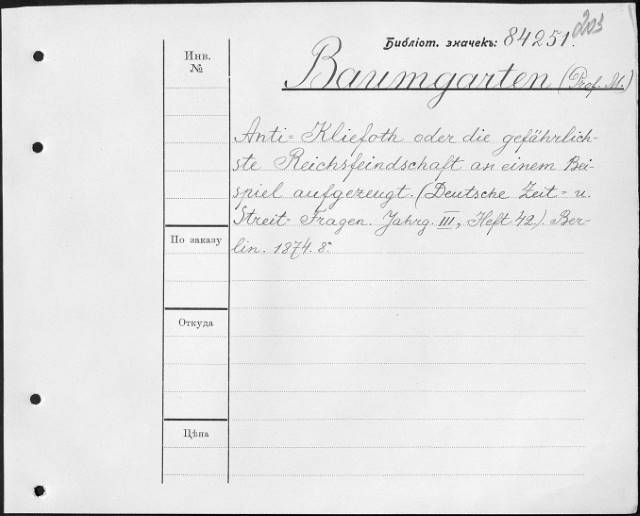 Библіот. значекъ: 84251.
Инв.
№
Baumgarten (Prof. M.)
Anti-Kliefoth oder die gefährlich-
ste Reichsfeindschaft an einem Bei-
spiel aufgezeugt. (Deutsche Zeit- u.
Streit-Fragen. Jahrg. III, Heft 42). Ber-
lin. 1874. 8º
По заказу
Откуда
Цѣна